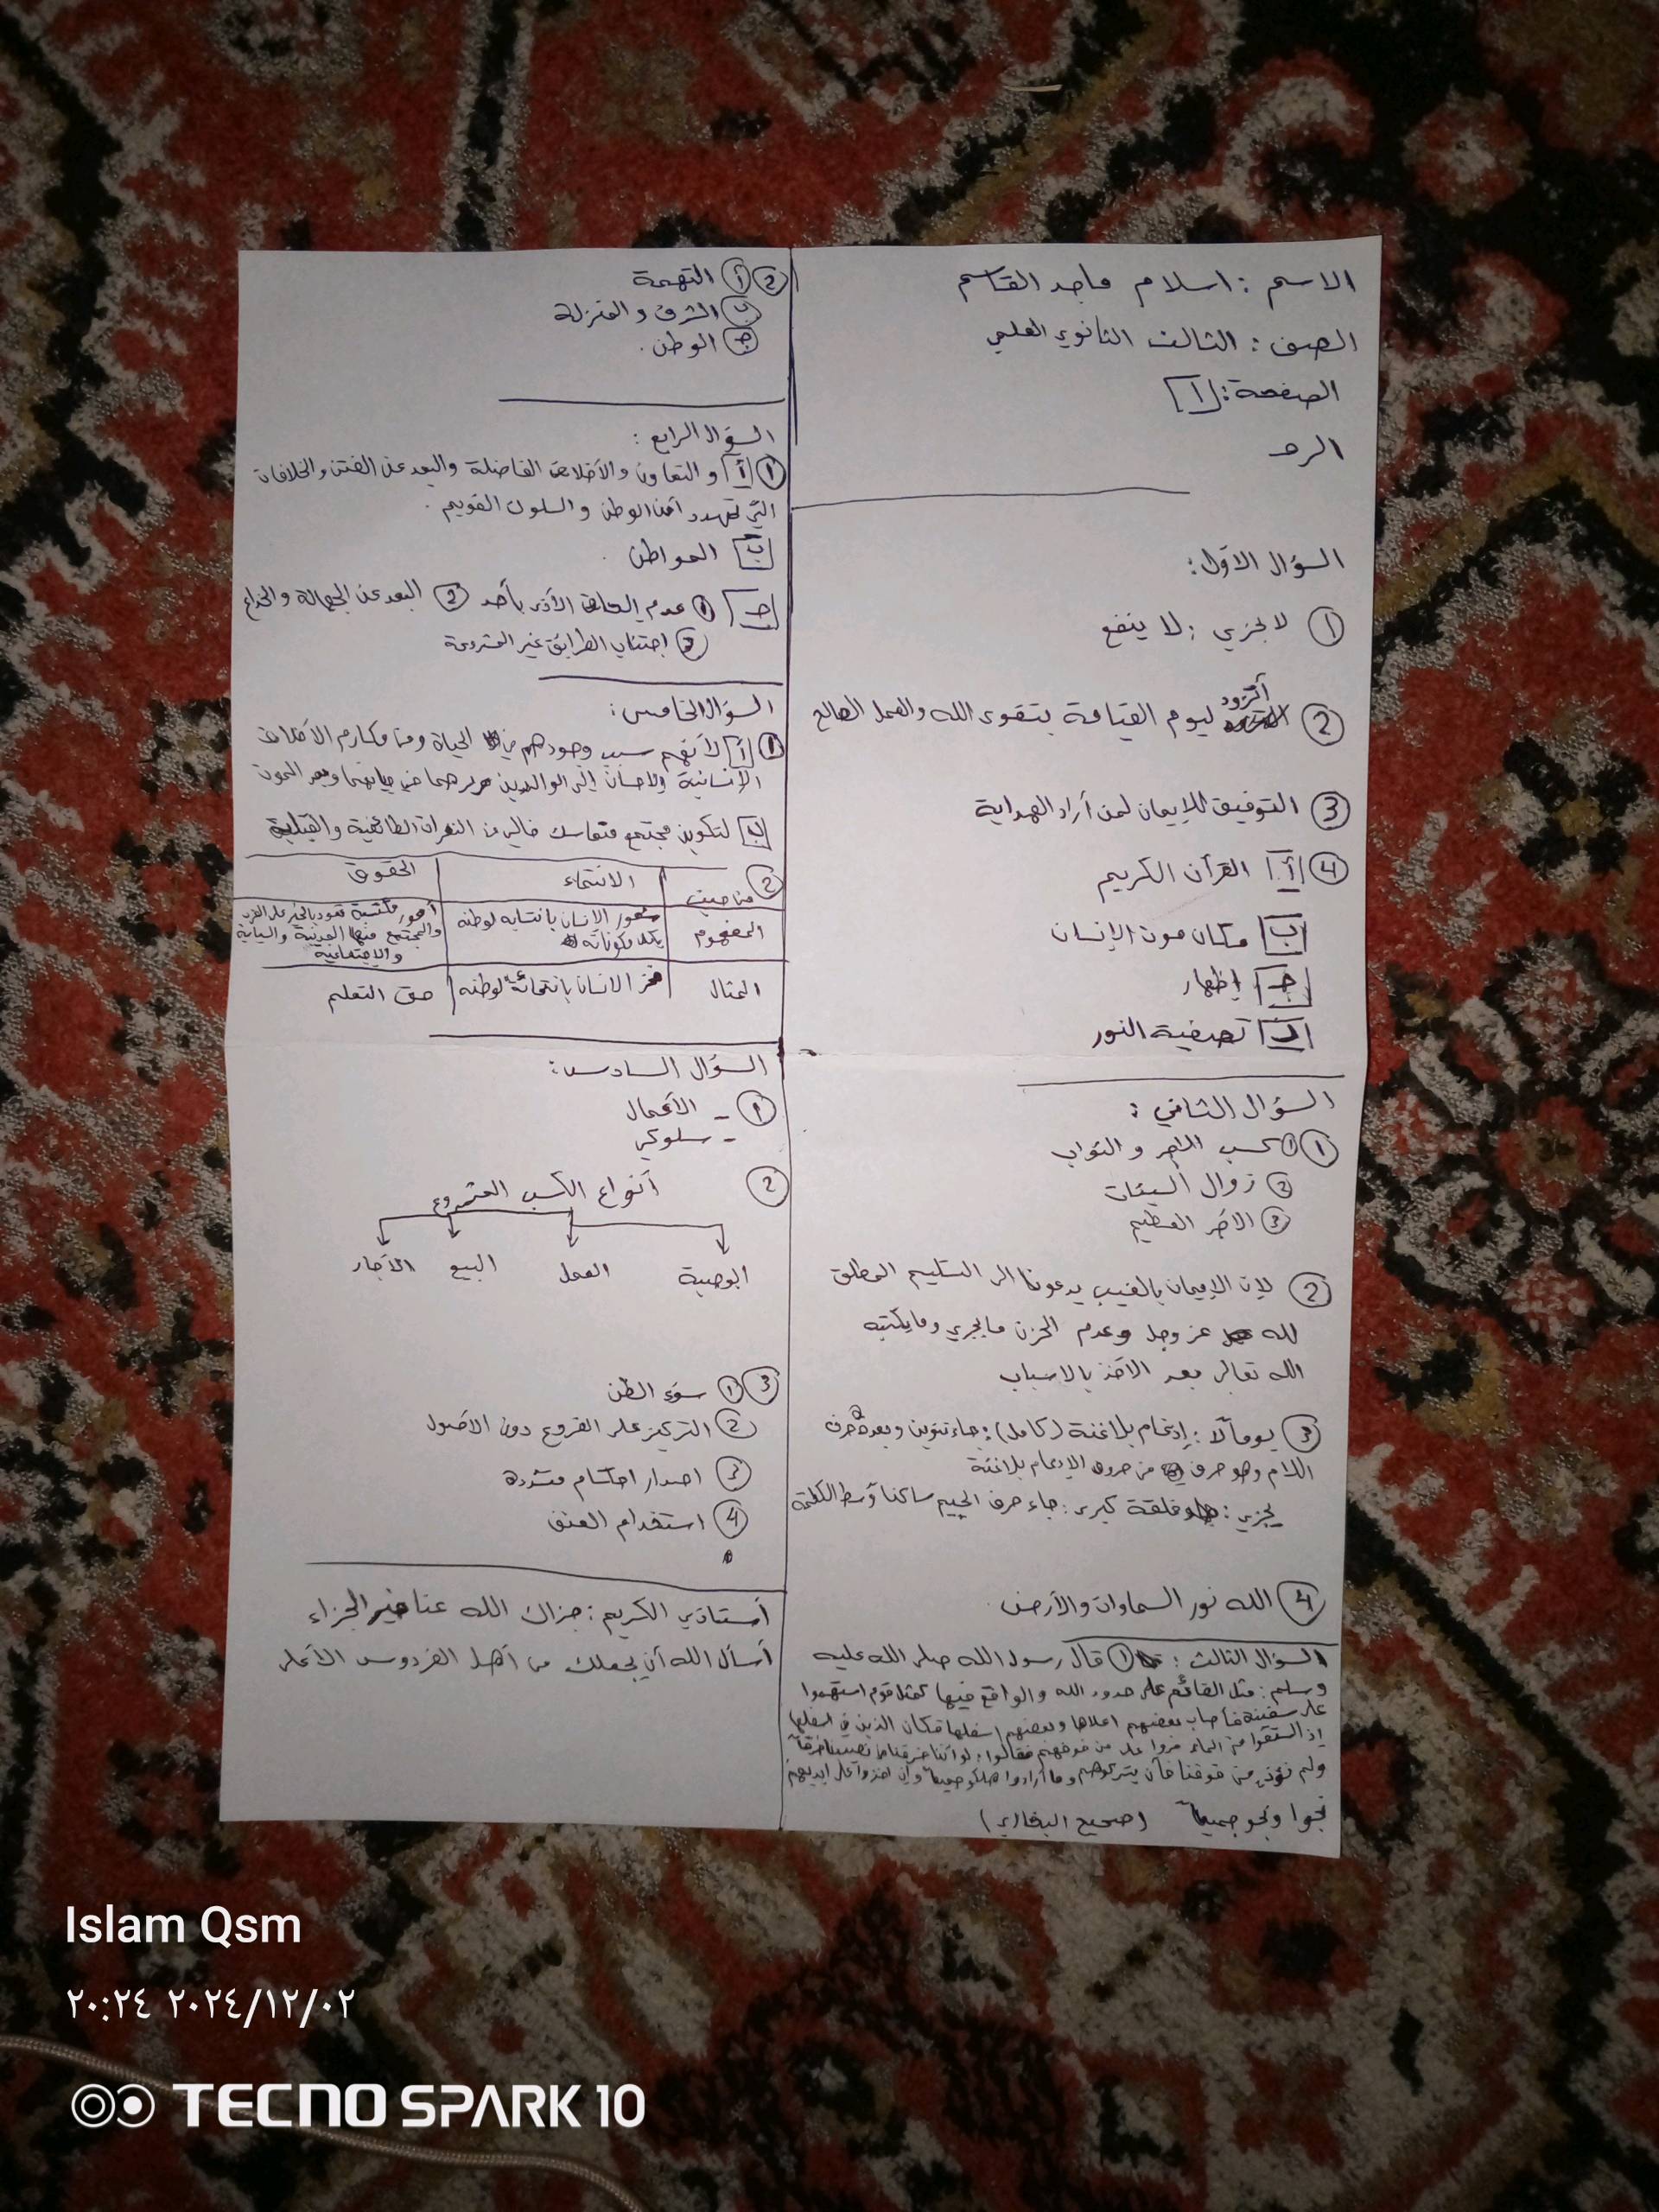 الاسم : اسلام ماجد القاسم
الصف : الثالث الثانوي العلمي
الصفحة : 1
الرد
السؤال الأول :
1 لا يجزي : لا ينفع
2 أتزود ليوم القيامة بتقوى الله والعمل الصالح
3 التوفيق للإيمان لمن أراد الهداية
4 أ القرآن الكريم
ب مكان موت الإنسان
جـ إظهار
د تصفية النور
السؤال الثاني :
1 1 كسب الاجر و الثواب
2 زوال السيئات
3 الأجر العظيم
2 لان الإيمان بالغيب يدعونا الى التسليم المطلق
لله عز وجل وعدم الحزن مايجري ومايكتبه
الله تعالى بعد الأخذ بالاسباب
3 يوماً لا : إدغام بلاغنة (كامل) : جاء تنوين وبعده حرف
اللام وهو حرف من حروف الادغام بلاغنة
يجزي : قلقة كبرى : جاء حرف الجيم ساكنا وسط الكلمة
4 الله نور السماوات والأرض
السؤال الثالث : 1 قال رسول الله صلى الله عليه
وسلم : مثل القائم على حدود الله والواقع فيها كمثل قوم استهموا
على سفينة فأصاب بعضهم اعلاها وبعضهم اسفلها فكان الذين في اسفلها
إذا استقوا من الماء مروا على من فوقهم فقالوا : لو أننا خرقنا نصيبنا خرقاً
ولم نؤذ من فوقنا فأن يتركوهم وما أرادوا هلكو جميعاً وإن اخذوا على ايديهم
نجوا ونجو جميعاً (صحيح البخاري)
2 أ التهمة
ب الشرف و المنزلة
جـ الوطن .
السؤال الرابع :
1 أ و التعاون والأخلاق الفاضلة والبعد عن الفتن والخلافات
التي تهدد أمن الوطن والسلوك القويم .
ب المواطن .
جـ 1 عدم إلحاق الأذى بأحد 2 البعد عن الجهالة والخداع
3 اجتناب الطرائق غير المشروعة
السؤال الخامس :
1 أ لأنهم سبب وجودهم في الحياة ومن مكارم الأخلاق
الإنسانية والاحسان إلى الوالدين برهما في حياتهما وبعد الموت
ب لتكوين مجتمع متماسك خالي من النعرات الطائفية والقبلية
2 من حيث الانتماء الحقوق
المفهوم شعور الإنسان بانتسابه لوطنه بكل مكوناته أمور مكتسبة تعود بالخير على الفرد والمجتمع منها المدنية والسياسية والاجتماعية
المثال فخر الانسان بانتمائه لوطنه حق التعلم
السؤال السادس :
1 - الأعمال
- سلوكي
2 أنواع الكسب المشروع
الوصية العمل البيع الآجار
3 1 سوء الظن
2 التركيز على الفروع دون الأصول
3 اصدار احكام مشدده
4 استخدام العنف
أستاذي الكريم : جزاك الله عنا خير الجزاء
أسأل الله أن يجعلك من أهل الفردوس الأعلى
Islam Qsm
٢٠:٢٤ ٢٠٢٤/١٢/٠٢
TECNO SPARK 10